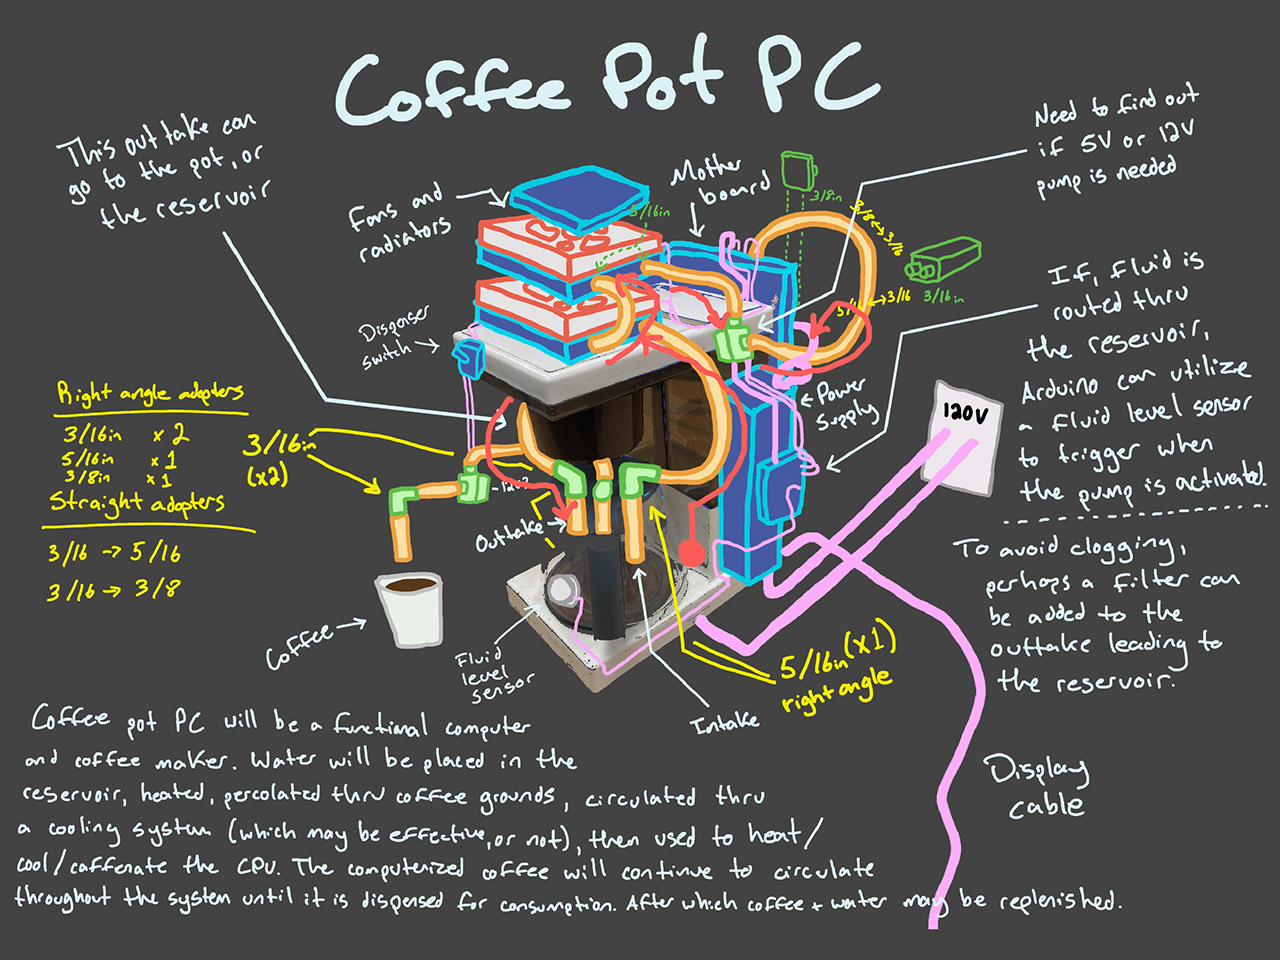 Coffee Pot PC
This out take can
go to the pot, or
the reservoir
Fans and
radiators
Mother
board
Need to find out
if 5V or 12V
pump is needed
5/16in
3/8in
3/8 ↔ 3/16
5/16 ↔ 3/16
3/16in
Dispenser
switch
If, fluid is
routed thru
the reservoir,
Arduino can utilize
a fluid level sensor
to trigger when
the pump is activated.
Power
Supply
120V
Right angle adapters
3/16in x2
5/16in x1
3/8in x1
Straight adapters
3/16 → 5/16
3/16 → 3/8
3/16in
(x2)
Outtake
To avoid clogging,
perhaps a filter can
be added to the
outtake leading to
the reservoir.
Coffee
Fluid
level
sensor
Intake
5/16in (x1)
right angle
Display
cable
Coffee pot PC will be a functional computer
and coffee maker. Water will be placed in the
reservoir, heated, percolated thru coffee grounds, circulated thru
a cooling system (which may be effective, or not), then used to heat/
cool/caffenate the CPU. The computerized coffee will continue to circulate
throughout the system until it is dispensed for consumption. After which coffee + water may be replenished.